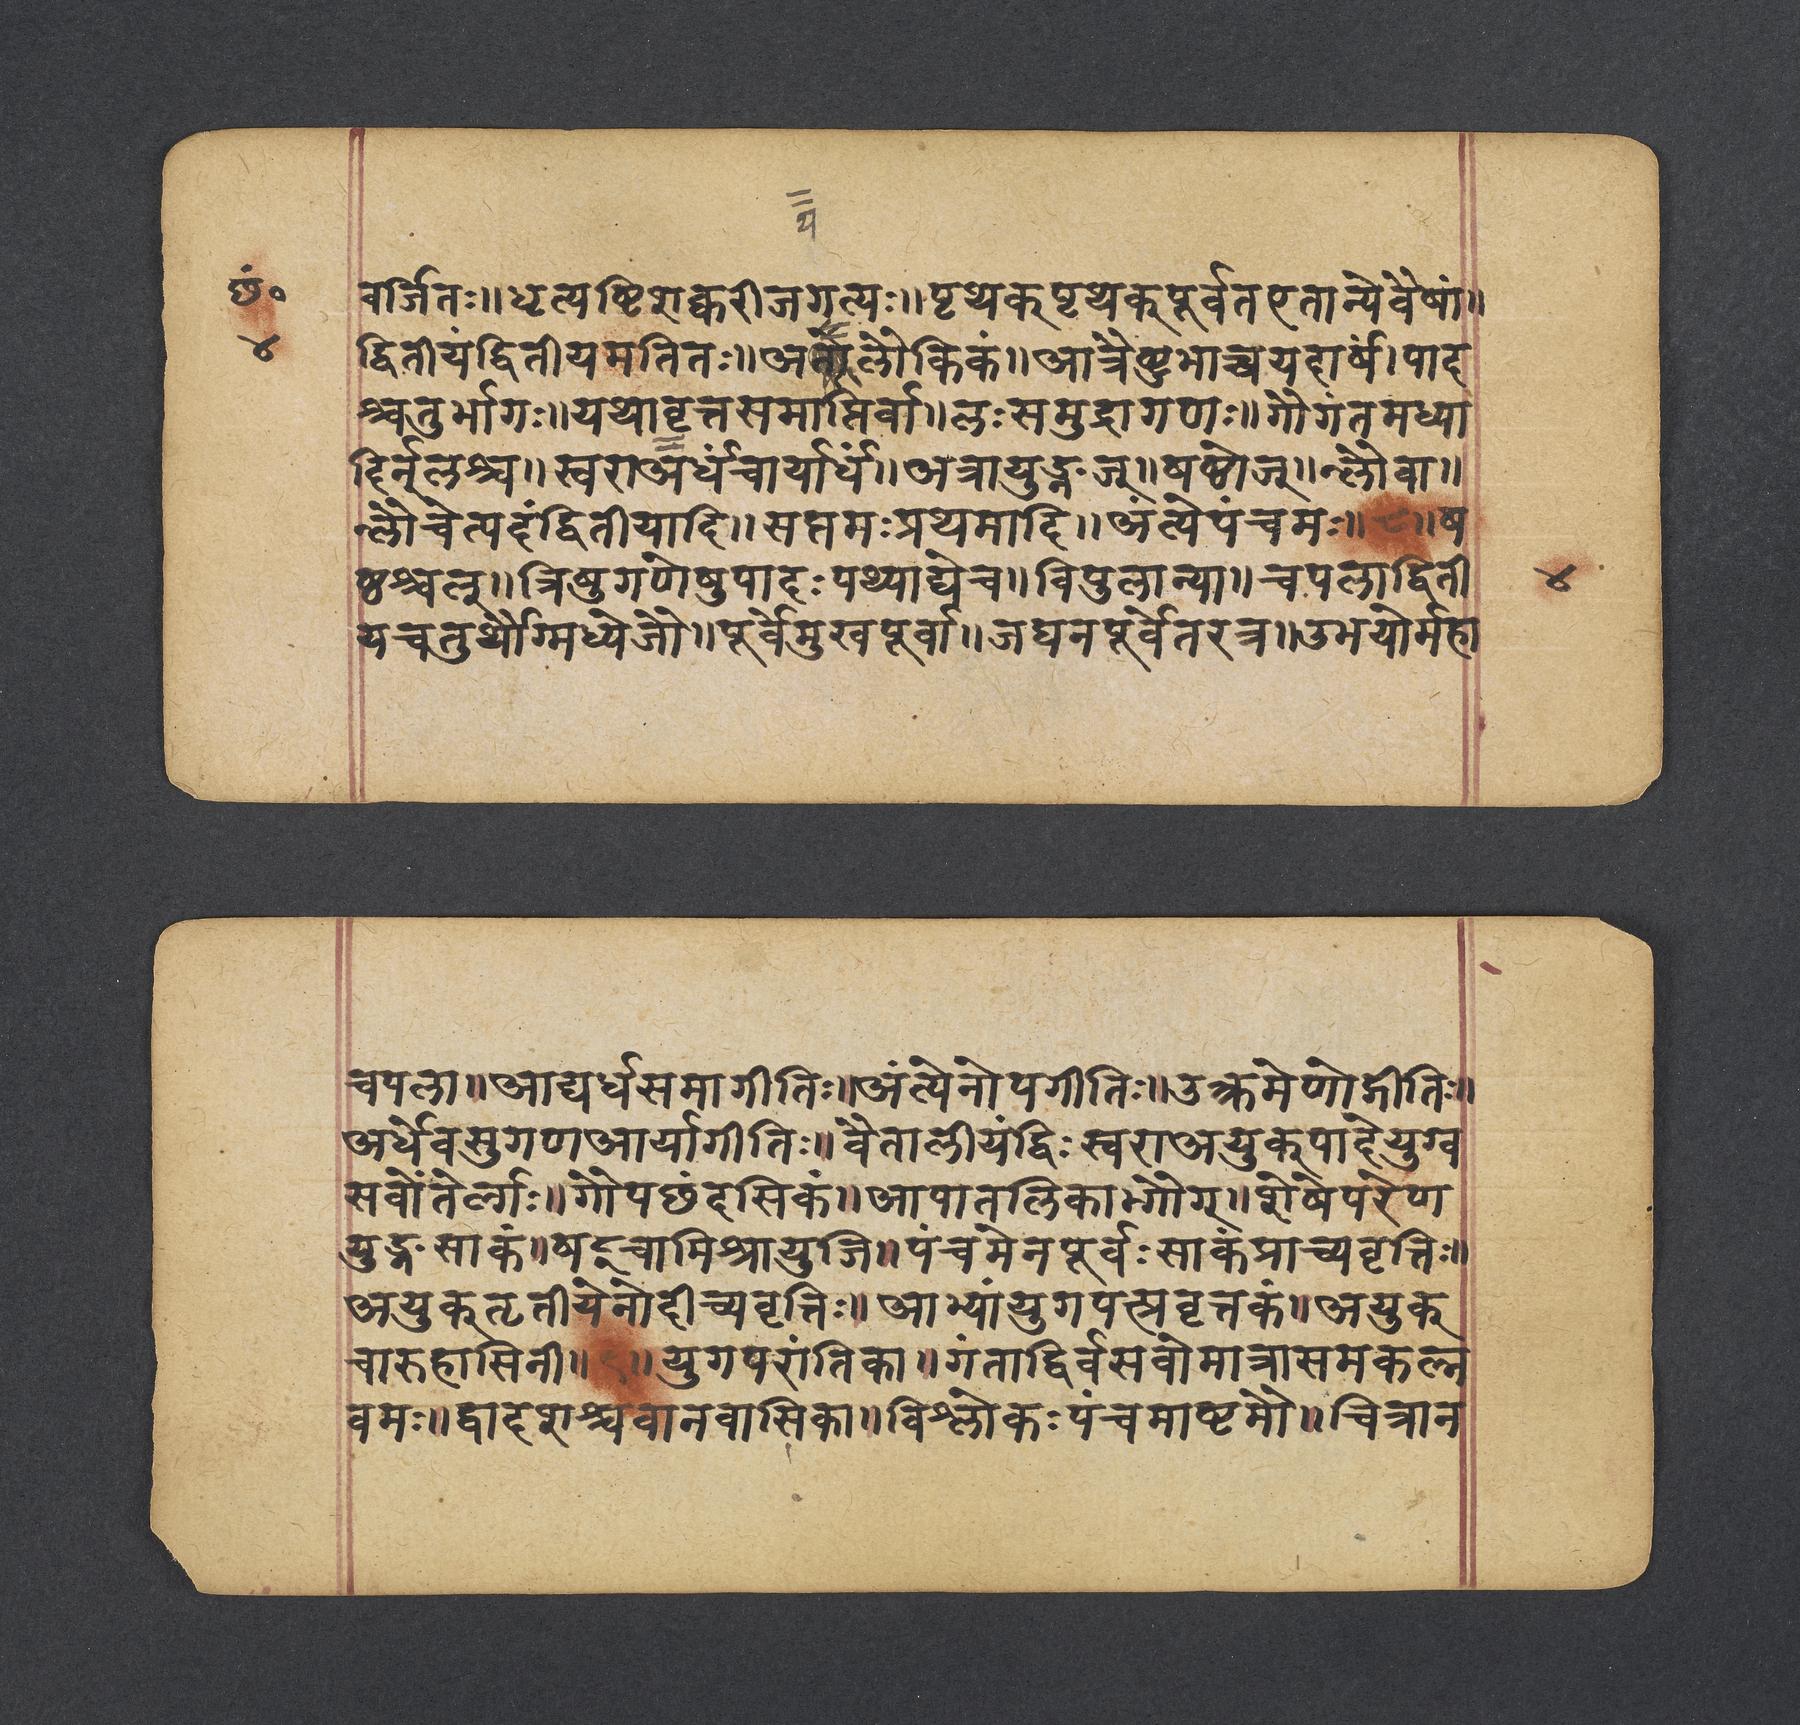 य
छं०
४
वर्जितः॥धृत्यष्टिशक्वरीजगत्यः॥पृथक्पृथक्पूर्वतएतान्येवैषां॥
द्वितीयंद्वितीयमतितः॥अत्रलौकिकं॥आत्रैष्टुभाच्चयदार्षं।पाद
श्चतुर्भागः॥यथावृत्तसमाप्तिर्वा॥लःसमुद्रागणः॥गौगंतमध्या
दिर्न्लश्च॥स्वराअर्धंचार्यार्धं॥अत्रायुङ्नज्॥षष्ठोज्॥न्लौवा॥
न्लौचेत्पदंद्वितीयादि॥सप्तमःप्रथमादि॥अंत्येपंचमः॥८॥ष
ष्ठश्चल्॥त्रिषुगणेषुपादःपथ्याद्येच॥विपुलान्या॥चपलाद्विती
यचतुर्थौग्मिध्येजौ॥पूर्वेमुखपूर्वा॥जघनपूर्वेतरत्र॥उभयोर्महा
४
चपला॥आद्यर्धसमागीतिः॥अंत्येनोपगीतिः॥उत्क्रमेणोद्गीतिः॥
अर्धेवसुगणआर्यागीतिः॥वैतालीयंद्विःस्वराअयुक्पादेयुग्व
सवोंतेर्लाः॥गौपछंदसिकं॥आपातलिकाभ्गौग्॥शेषेपरेण
युङ्नसाकं॥षट्चामिश्रायुजि॥पंचमेनपूर्वःसाकंप्राच्यवृत्तिः॥
अयुक्तृतीयेनोदीच्यवृत्तिः॥आभ्यांयुगपत्प्रवृत्तकं॥अयुक्
चारुहासिनी॥९॥युगपरांतिका॥गंताद्विर्वसवोमात्रासमकल्न
वमः॥द्वादशश्चवानवासिका॥विश्लोकःपंचमाष्टमौ॥चित्रान